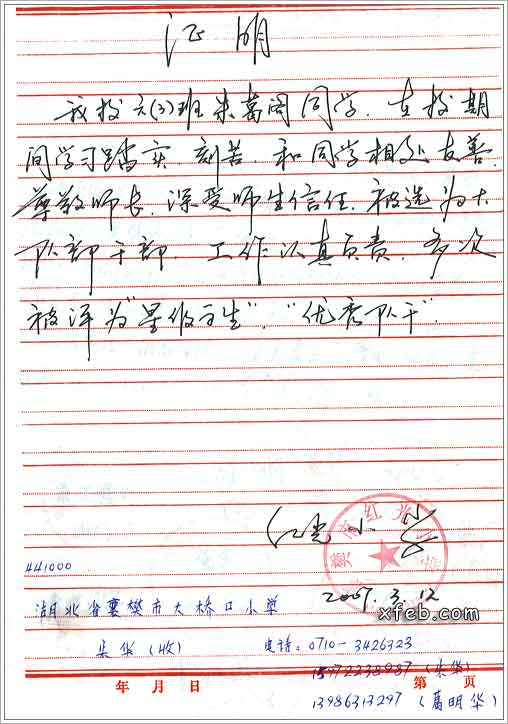 证明
我校六(3)班朱葛阁同学，在校期
间学习踏实，刻苦，和同学相处友善，
尊敬师长，深受师生信任，被选为大
队部干部，工作认真负责，多次
被评为"星级学生"，"优秀队干"。
红光小学
2007.3.12
xfeb.com
441000
湖北省襄樊市大桥口小学
朱华(收) 电话：0710-3426323
15972238987 (朱华)
年 月 日 第 页
13986313297 (葛明华)